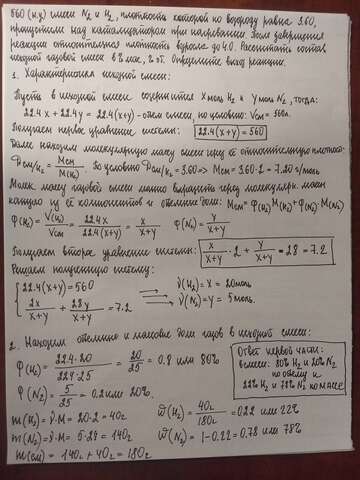 560 л (н.у.) смеси N₂ и H₂, плотность которой по водороду равна 3.60,
пропустили над катализатором при нагревании. После завершения
реакции относительная плотность возросла до 4.0. Рассчитать состав
исходной газовой смеси в % масс., % об. Определите выход реакции.
1. Характеристика исходной смеси:
Пусть в исходной смеси содержится x моль H₂ и y моль N₂, тогда:
22.4x + 22.4y = 22.4(x+y) - объем смеси, по условию: Vсм = 560л.
Получаем первое уравнение системы: 22.4(x+y) = 560
Далее находим молекулярную массу смеси через её относительную плотность:
Dсм/H₂ = Mсм/M(H₂). По условию Dсм/H₂ = 3.60 => Mсм = 3.60·2 = 7.20 г/моль
Молек. массу газовой смеси можно выразить через молекулярн. массы
каждого из её компонентов и объемные доли: Mсм = φ(H₂)·M(H₂) + φ(N₂)·M(N₂)
φ(H₂) = V(H₂)/Vсм = 22.4x/22.4(x+y) = x/x+y φ(N₂) = y/x+y
Получаем второе уравнение системы: x/x+y · 2 + y/x+y · 28 = 7.2
Решаем полученную систему:
{22.4(x+y) = 560
2x/x+y + 28y/x+y = 7.2
ν(H₂) = x = 20 моль
ν(N₂) = y = 5 моль.
2. Находим объемные и массовые доли газов в исходной смеси:
φ(H₂) = 22.4·20/22.4·25 = 20/25 = 0.8 или 80%
φ(N₂) = 5/25 = 0.2 или 20%.
Ответ первой части:
в смеси: 80% H₂ и 20% N₂
по объему и
22% H₂ и 78% N₂ по массе
m(H₂) = ν·M = 20·2 = 40г ω(H₂) = 40г/180г = 0.22 или 22%
m(N₂) = ν·M = 5·28 = 140г ω(N₂) = 1-0.22 = 0.78 или 78%
m(см) = 140г + 40г = 180г